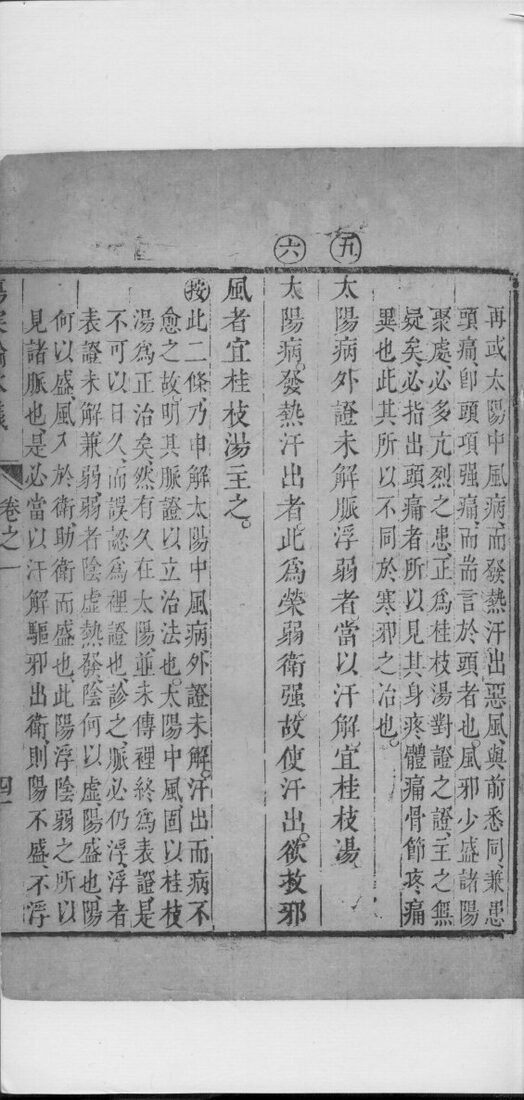 再或太陽中風病、而發熱汗出惡風、與前悉同、兼患
頭痛卽頭項强痛、而耑言於頭者也。風邪少盛諸陽
聚處、必多亢烈之患、正爲桂枝湯對證之證、主之無
疑矣、必指出頭痛者所以見其身疼體痛骨節疼痛
異也此其所以不同於寒邪之治也。
五
太陽病外證未解脈浮弱者當以汗解宜桂枝湯。
六
太陽病。發熱汗出者此爲榮弱衛强故使汗出。欲救邪
風者宜桂枝湯主之。
按此二條、乃申解太陽中風病、外證未解。汗出而病不
愈之故。明其脈證以立治法也。太陽中風固以桂枝
湯爲正治矣然有久在太陽、並未傳裡終爲表證、是
不可以日久、而誤認爲裡證也、診之、脈必仍浮、浮者
表證未解兼弱、弱者陰虛熱發、陰何以虛、陽盛也、陽
何以盛、風入於衛、助衛而盛也、此陽浮陰弱之所以
見諸脈也、是必當以汗解驅邪出衛、則陽不盛、不浮
卷之一
四